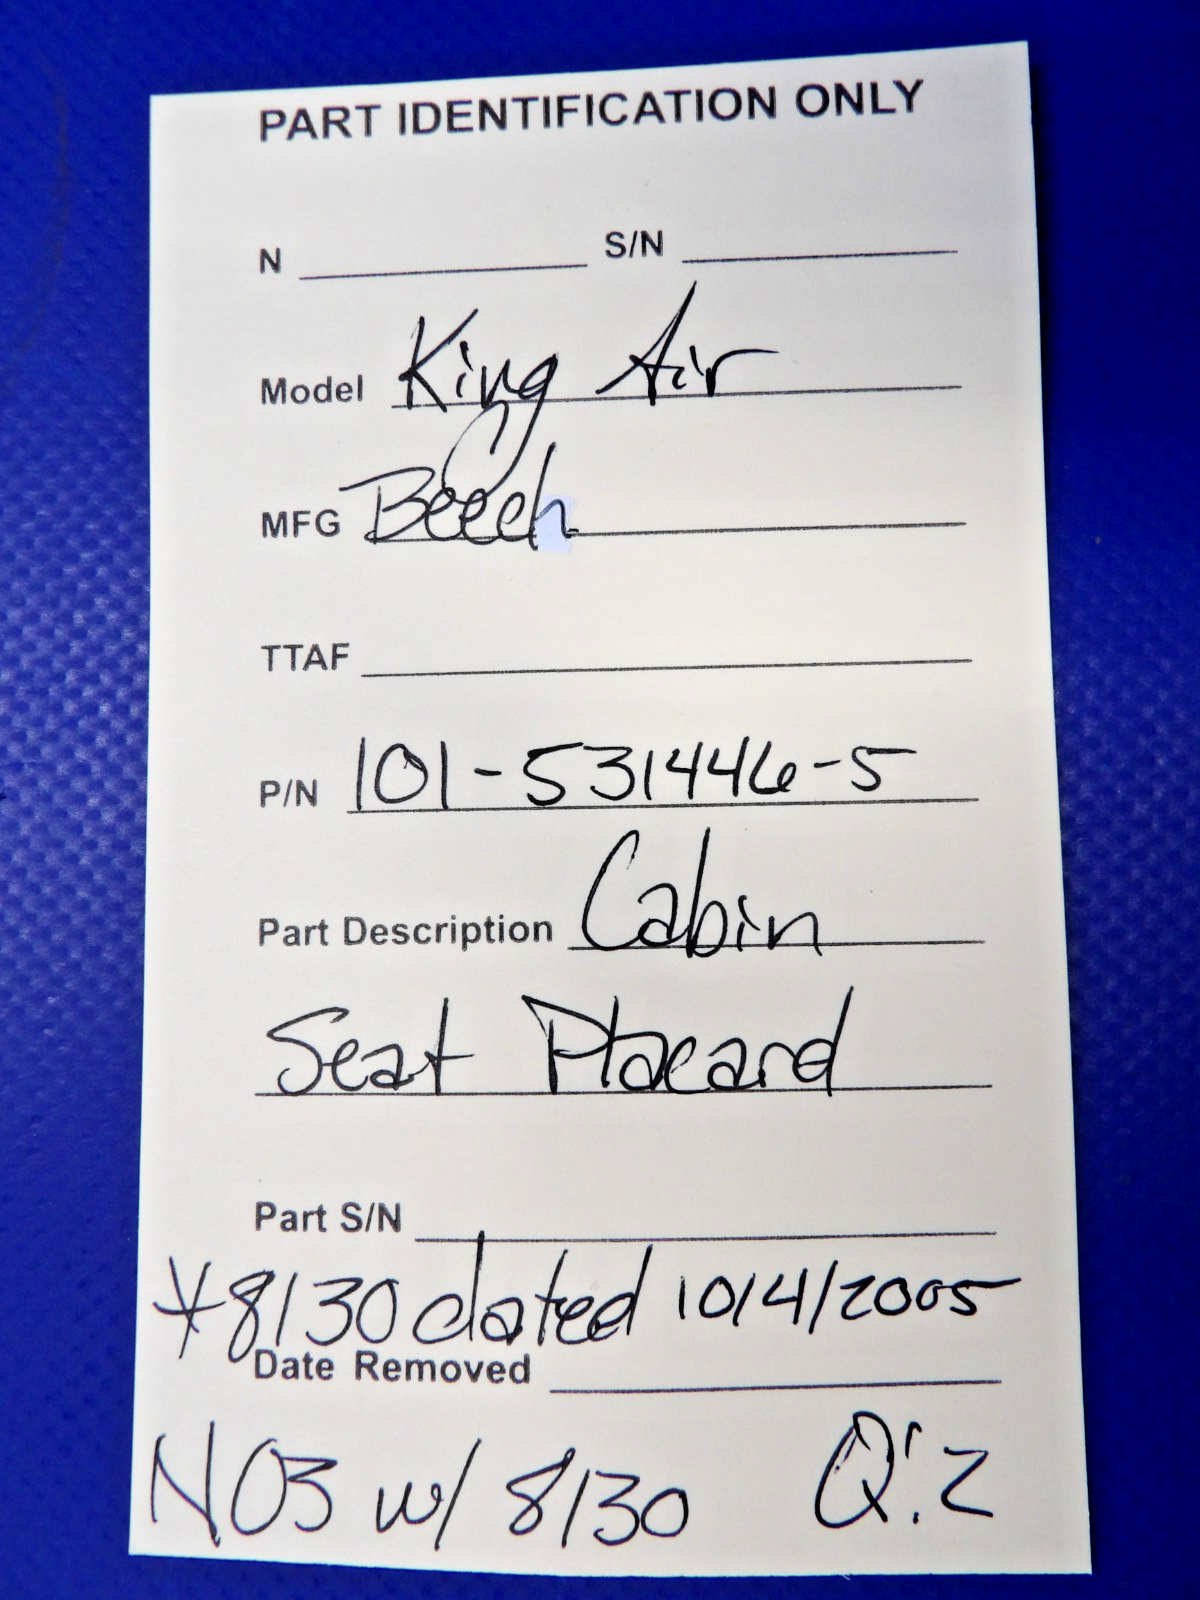 PART IDENTIFICATION ONLY
N S/N
Model King Air
MFG Beech
TTAF
P/N 101-531446-5
Part Description Cabin
Seat Placard
Part S/N
*8130 dated 10/4/2005
Date Removed
NOS w/ 8130 Q:2